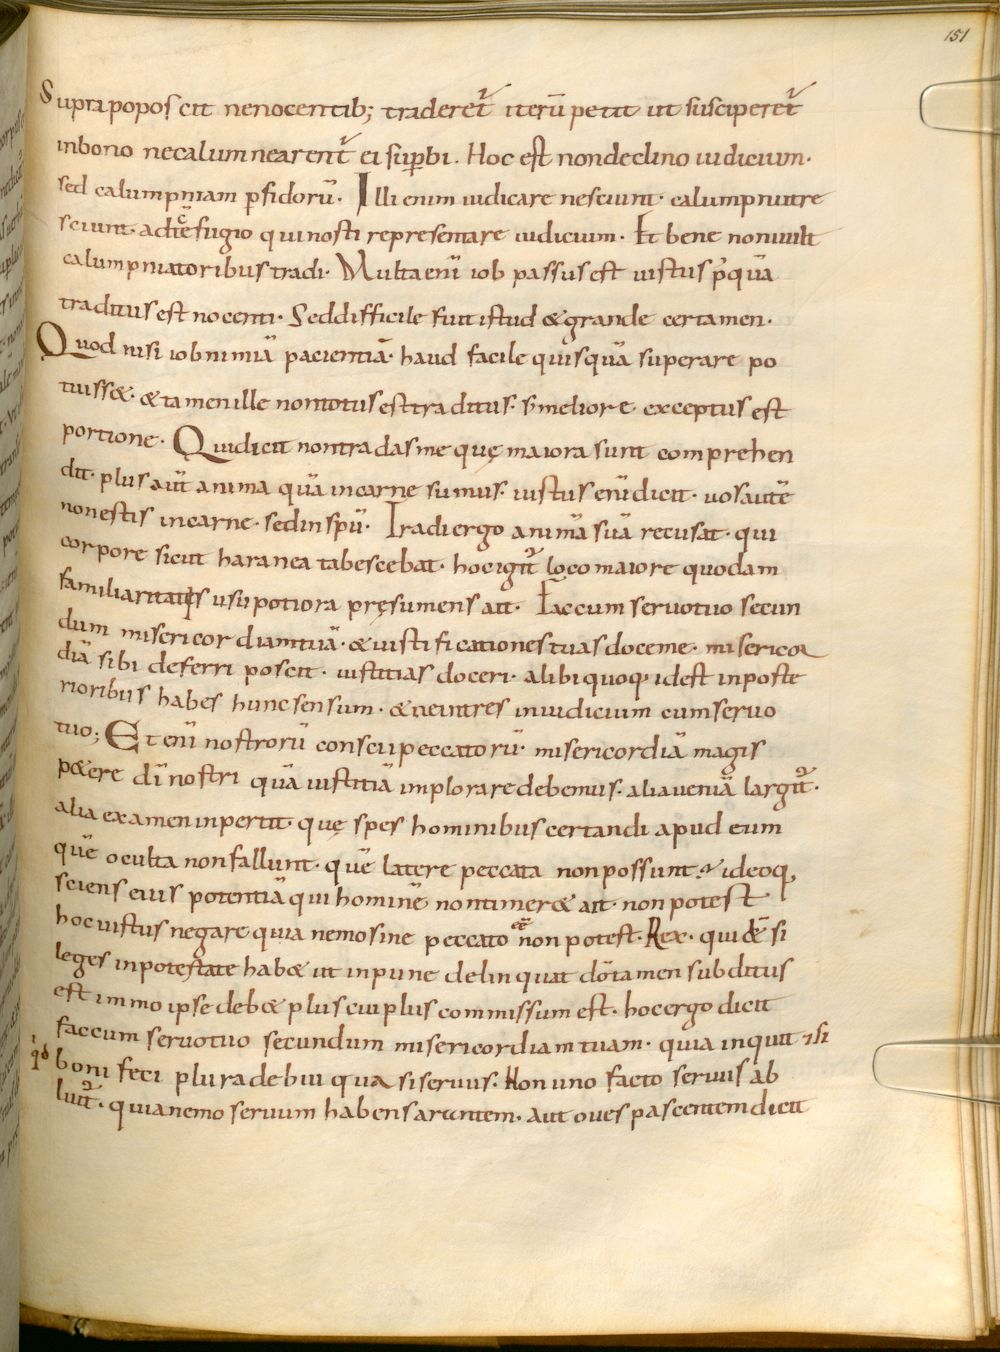 151
Supra poposcit ne nocentib; traderet᷑ iterū petit ut susciperet᷑
inbono ne calumnearent᷑ ei sup̱bi. Hoc est non declino iudicium.
sed calumpniam p̱fidorū. Illi enim iudicare nesciunt. calumpniare
sciunt. adtē fugio qui nosti representare iudicium. Et bene nonuult
calumpniatoribus tradi. Multa eni̅ iob passus est iustus p̓quā
traditus est nocenti. Sed difficile fuit istud & grande certamen.
Quod nisi iob nimiā pacientiā. haud facile quisquā superare po
tuiss&. & tamen ille non totus est traditus. s; meliore exceptus est
portione. Qui dicit non tradas me quę maiora sunt comprehen
dit. plus aut̄ anima quā in carne sumus. iustus eni̅ dicit. uos autē
non estis in carne. sed in spū. Tradi ergo animā suā recusat. qui
corpore sicut haranea tabescebat. hoc igit᷑ loco maiore quodam
familiaritatis usu potiora pręsumens ait. Fac cum seruo tuo secun
dum misericordiam tuā. & iustificationes tuas doce me. misericor
diā sibi deferri poscit. iustitias doceri. alibi quoq; idest in poste
rioribus habes hunc sensum. & ne intres in iudicium cum seruo
tuo; Et eni̅ nostrorū conscii peccatorū. misericordiā magis
p&ere dī nostri quā iustitiā implorare debemus. alia ueniā largit᷑.
alia examen inpertit. quę spes hominibus certandi apud eum
quē oculta non fallunt. quē latere peccata non possunt & ideoq;
sciens eius potentiā qui hominē non timer& ait. non potest
hoc iustus negare quia nemo sine peccato eē non potest. Rex. quidē si
leges in potestate hab& ut inpune delinquat dō tamen subditus
est immo ipse deb& plus cui plus commissum est. hoc ergo dicit
fac cum seruo tuo secundum misericordiam tuam. quia inquit & si
qd boni feci plura debui qua si seruus. Non uno facto seruus ab
luit᷑. quia nemo seruum habens arantem. aut oues pascentem dicit